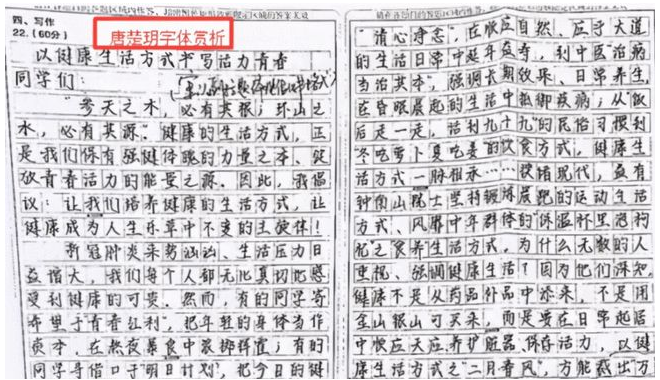 四、写作
22.（60分）
唐楚玥字体赏析
以健康生活方式书写活力青春
同学们：
“参天之木，必有其根；环山之
水，必有其源。”健康的生活方式，正
是我们保有强健体魄的力量之本、绽
放青春活力的能量之源。因此，我倡
议：让我们培养健康的生活方式，让
健康成为人生乐章中不变的主旋律！
新冠肺炎来势汹汹、生活压力日
益增大，我们每个人都无比真切地感
受到健康的可贵。然而，有的同学寄
希望于“青春红利”，把年轻的身体当作
资本，在熬夜暴食中
同学寄借口于“明日计划”，把今日的健
“清心净志”，在顺应自然、应乎大道
的生活日常中延年益寿，到中医“治病
当治其本”，强调长期效果、日常养生，
在昏眠晨起的生活中抵御疾病；从“饭
后走一走，活到九十九”的民俗习惯到
冬吃萝卜夏吃姜的饮食方式，健康生
活方式一脉相承……放诸现代，益有
钟南山院士坚持锻炼晨跑的运动生活
方式、风靡中年群体的“保温杯里泡枸
杞”之食养生活方式，为什么无数的人
重视、强调健康生活？因为他们深知，
健康不是从药品补品中添来，不是用
金山银山可买来，而是要在日常起居
中顺应天应养护脏器、保存活力，以健
康生活方式之“二月春风”，方能裁出“万